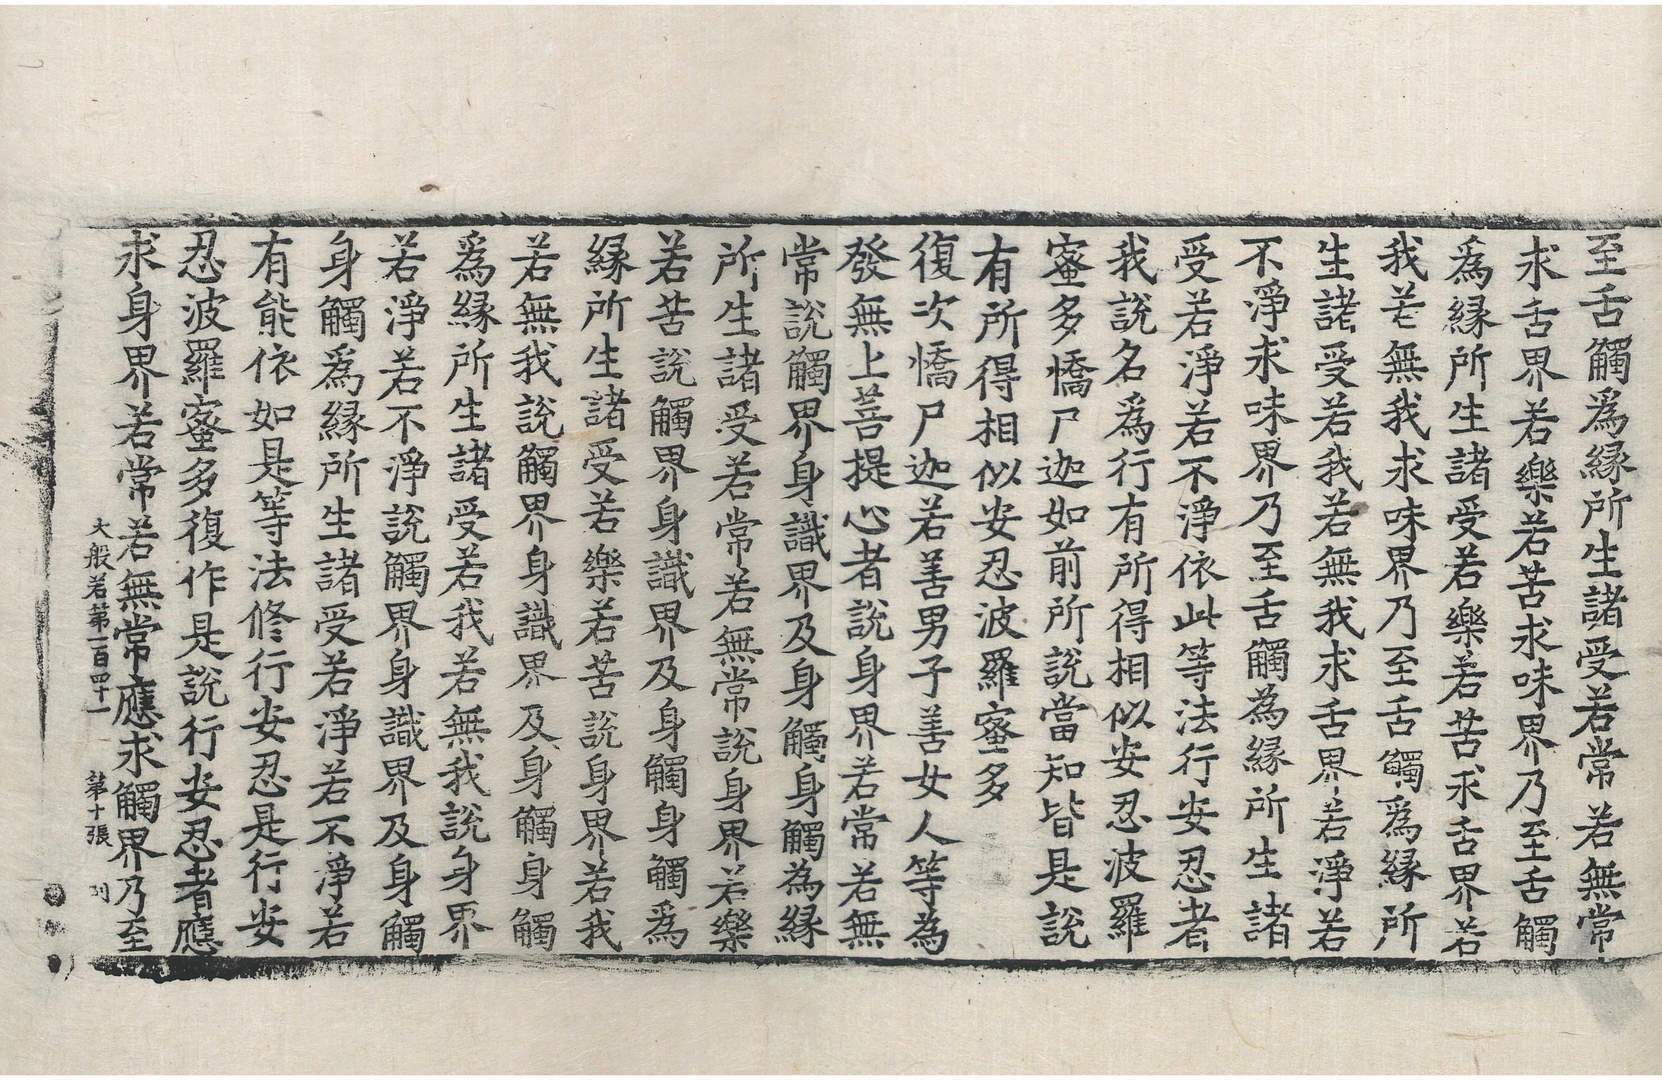 至舌觸爲緣所生諸受若常若無常
求舌界若樂若苦求味界乃至舌觸
爲緣所生諸受若樂若苦求舌界若
我若無我求味界乃至舌觸爲緣所
生諸受若我若無我求舌界若淨若
不淨求味界乃至舌觸爲緣所生諸
受若淨若不淨依此等法行安忍者
我說名爲行有所得相似安忍波羅
蜜多憍尸迦如前所說當知皆是說
有所得相似安忍波羅蜜多
復次憍尸迦若善男子善女人等為
發無上菩提心者說身界若常若無
常說觸界身識界及身觸身觸為緣
所生諸受若常若無常說身界若樂
若苦說觸界身識界及身觸身觸爲
緣所生諸受若樂若苦說身界若我
若無我說觸界身識界及身觸身觸
爲緣所生諸受若我若無我說身界
若淨若不淨說觸界身識界及身觸
身觸爲緣所生諸受若淨若不淨若
有能依如是等法修行安忍是行安
忍波羅蜜多復作是說行安忍者應
求身界若常若無常應求觸界乃至
大般若第一百四十一 第十張